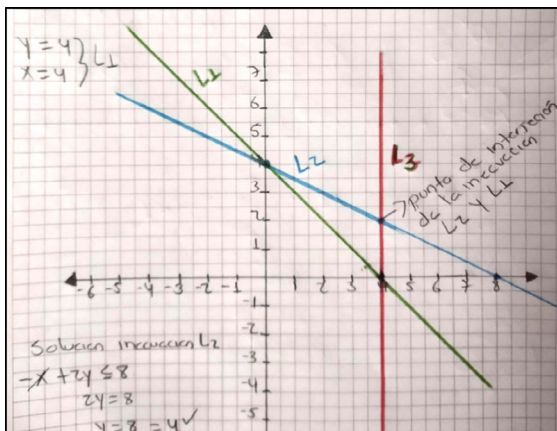 y = 4
x = 4
} L1
L1
L2
L3
punto de Interseccion
de la inecuacion
L2 y L1
7
6
5
4
3
2
1
-6 -5 -4 -3 -2 -1 1 2 3 4 5 6 7 8
-1
-2
-3
-4
-5
Solucion inecuacion L2
-x + 2y ≤ 8
2y = 8
y = 8 = 4 ✓